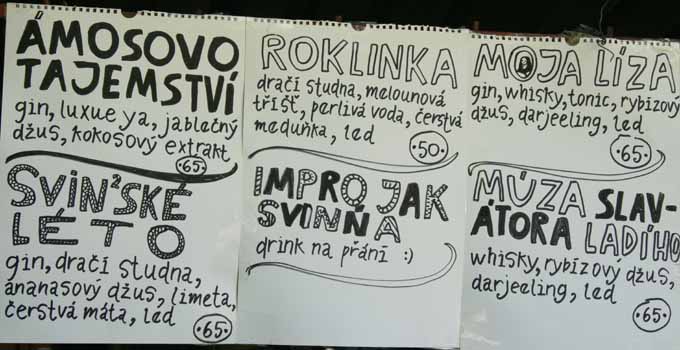 ÁMOSOVO
TAJEMSTVÍ
gin, luxue ya, jablečný
džus, kokosový extrakt
65.
SVINSKÉ
LÉTO
gin, dračí studna,
ananasový džus, limeta,
čerstvá máta, led
.65.
ROKLINKA
dračí studna, melounová
tříšť, perlivá voda, čerstvá
meduňka, led
.50.
IMPRO JAK
SVINŇA
drink na přání :)
MOJA LÍZA
gin, whisky, tonic, rybízový
džus, darjeeling, led
.65.
MÚZA SLAV-
ÁTORA LADÍHO
whisky, rybízový džus,
darjeeling, led
.65.